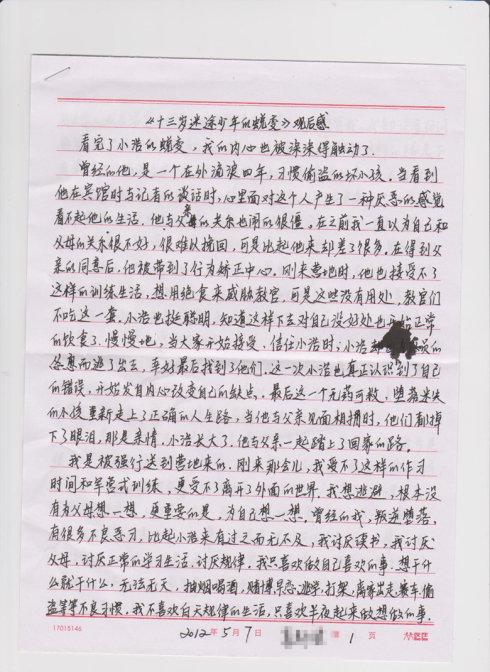 《十三岁迷途少年的蜕变》观后感
看完了小浩的蜕变，我的内心也被深深得触动了.
曾经的他，是一个在外滴浪四年，习惯偷盗的坏小孩. 当看到
他在宾馆时与记者的谈话时，心里面对这个人产生了一种厌恶的感觉
看不起他的生活，他与父亲的关系也闹的很僵。在之前我一直以为自己和
父母的关系很不好，很难以挽回，可是比起他来却差了很多。在得到父
亲的同意后，他被带到了行为矫正中心。刚来营地时，他也接受不了
这样的训练生活，想用绝食来威胁教官，可是这些没有用处，教官们
不吃这一套。小浩也挺聪明，知道这样下去对自己没好处也开始正常
的饮食了. 慢慢地，当大家开始接受. 信任小浩时，小浩却
怂恿而逃了出去，幸好最后找到了他们，这一次小浩也真正认识到了自己
的错误，开始发自内心改变自己的缺点，最后这一个无药可救，堕落迷失
的小孩重新走上了正确的人生路，当他与父亲见面相拥时，他们都掉
下了眼泪，那是亲情，小浩长大了，他与父亲一起踏上了回家的路。
我是被强行送到营地来的，刚来那会儿，我受不了这样的作习
时间和军营式训练，更受不了离开了外面的世界，我想逃避，根本没
有为父母想一想，更重要的是，为自己想一想。曾经的我，叛逆堕落，
有很多不良恶习，比起小浩来有过之而无不及，我讨厌读书，我讨厌
父母，讨厌正常的学习生活，讨厌规律，我只喜欢做自己喜欢的事，想干什
么就干什么，无法无天，抽烟喝酒，赌博早恋，逃学，打架，离家出走，赛车，偷
盗等等不良习惯，我不喜欢白天规律的生活，只喜欢半夜起来做想做的事.
17015146 2012年5月7日 第1页